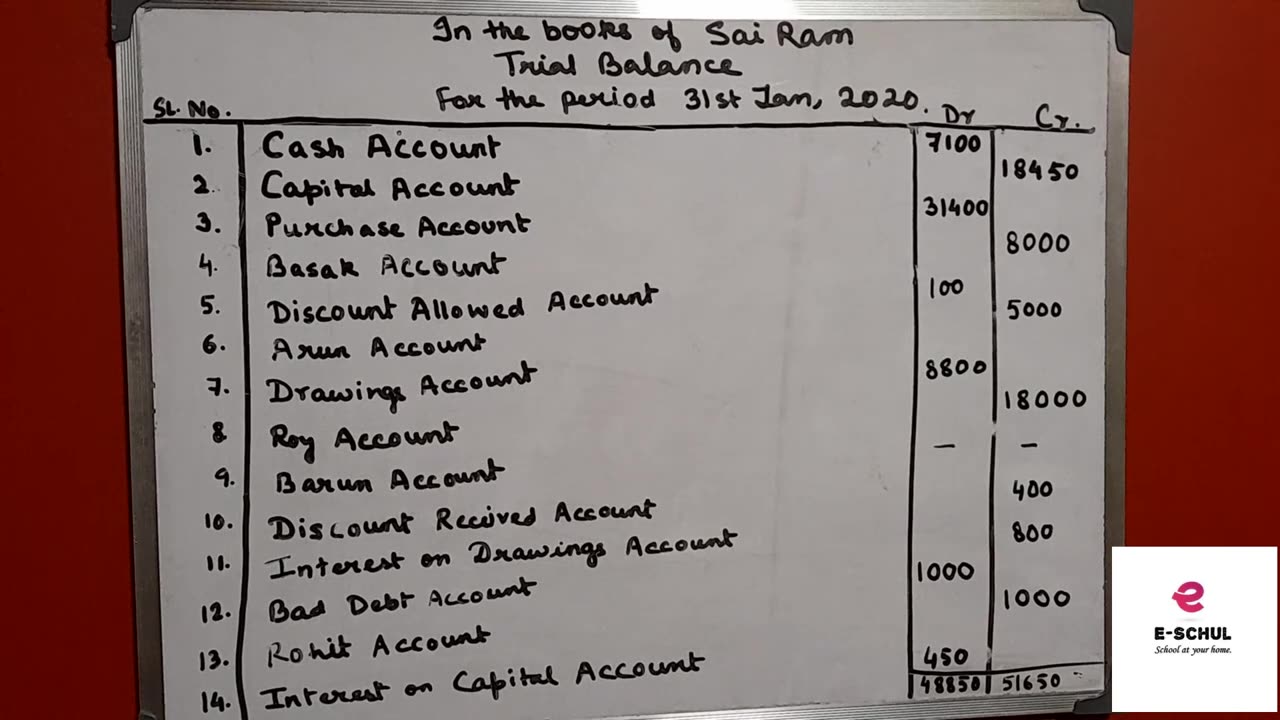 In the books of Sai Ram
Trial Balance
For the period 31st Jan, 2020.
SL. No. Dr Cr.
1. Cash Account 7100
2. Capital Account 18450
3. Purchase Account 31400
4. Basak Account 8000
5. Discount Allowed Account 100
6. Arun Account 5000
7. Drawings Account 8800
8 Roy Account 18000
9. Barun Account — —
10. Discount Received Account 400
11. Interest on Drawings Account 800
12. Bad Debt Account 1000
13. Rohit Account 1000
14. Interest on Capital Account 450
48850 51650
e
E-SCHUL
School at your home.